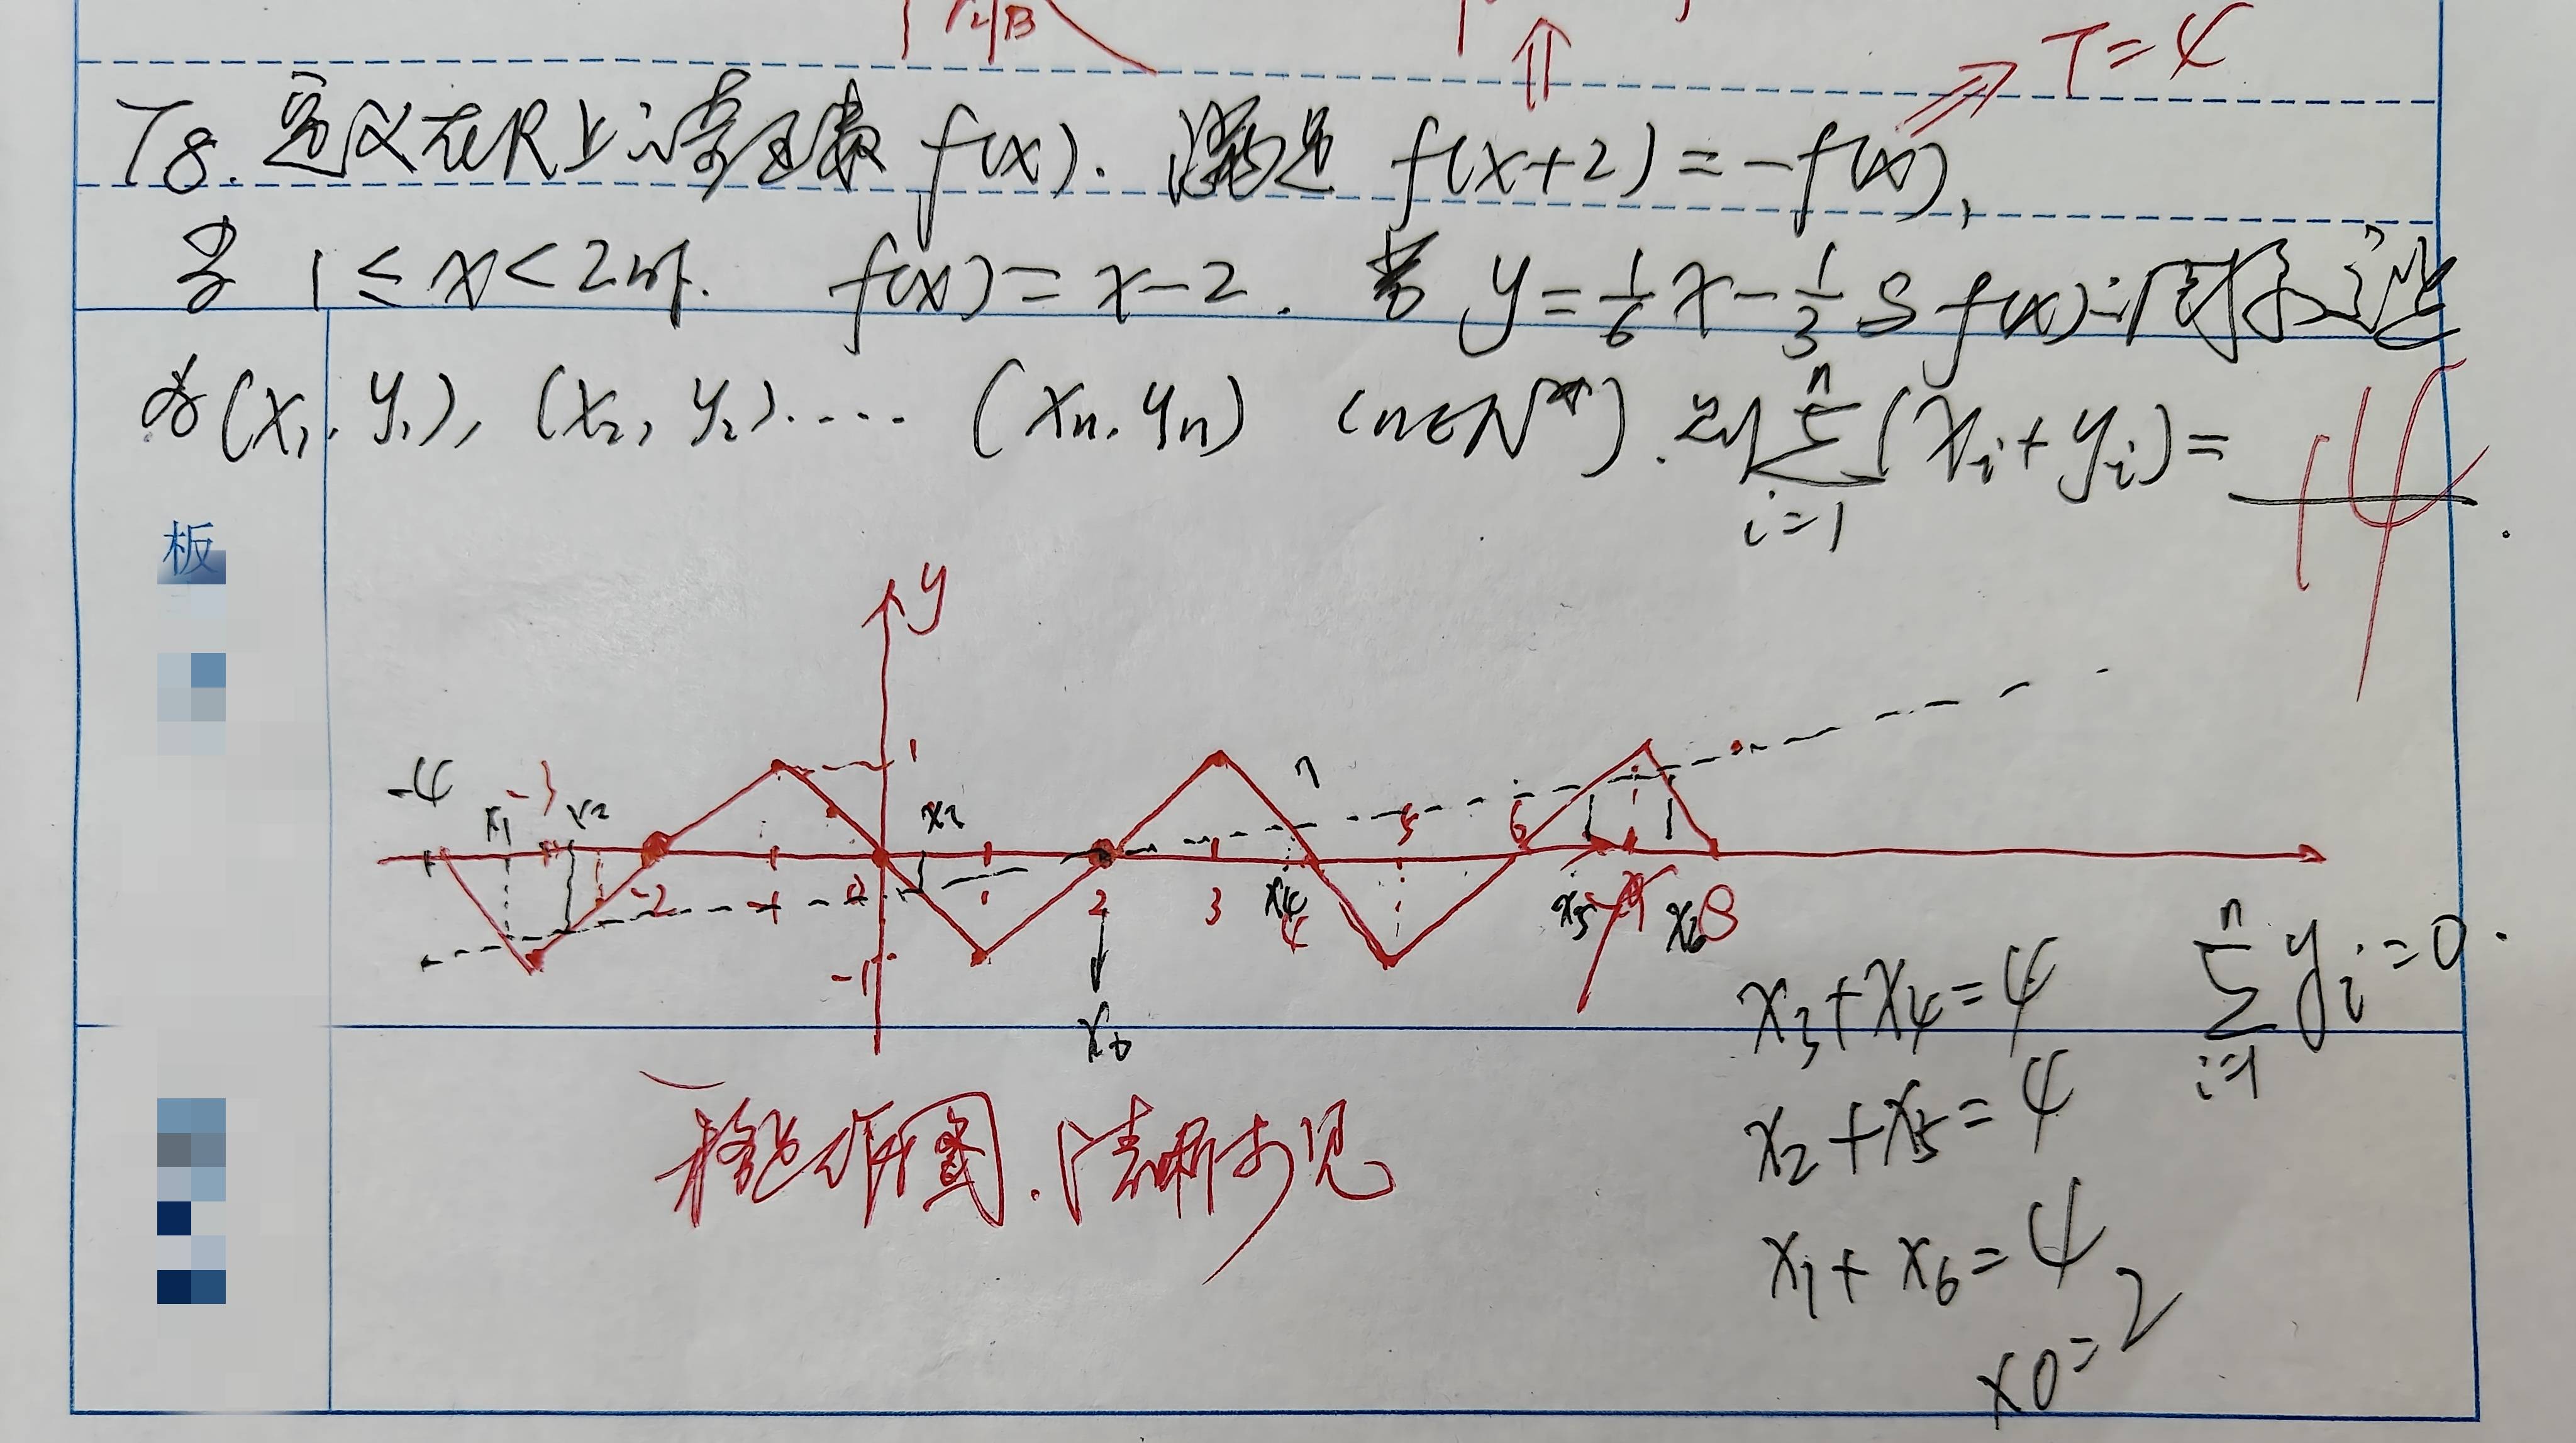 T=4
T8. 定义在R上的奇函数 f(x). 满足 f(x+2)=-f(x),
当 1≤x<2时. f(x)=x-2. 若 y=1/6x-1/3与f(x)的图象交点
为(x₁,y₁), (x₂,y₂)···· (xn,yn) (n∈N*). 则∑ⁿᵢ₌₁(xᵢ+yᵢ)= 14.
板
y
1
-4 x₁ -3 x₂ x₃ 5 6
-2 -1 0 1 2 3 x₄ 4 x₅ x₆ 8
-1
x₀
x₃+x₄=4 ∑ⁿᵢ₌₁yᵢ=0.
x₂+x₅=4
x₁+x₆=4
x0=2
作图.清晰可见